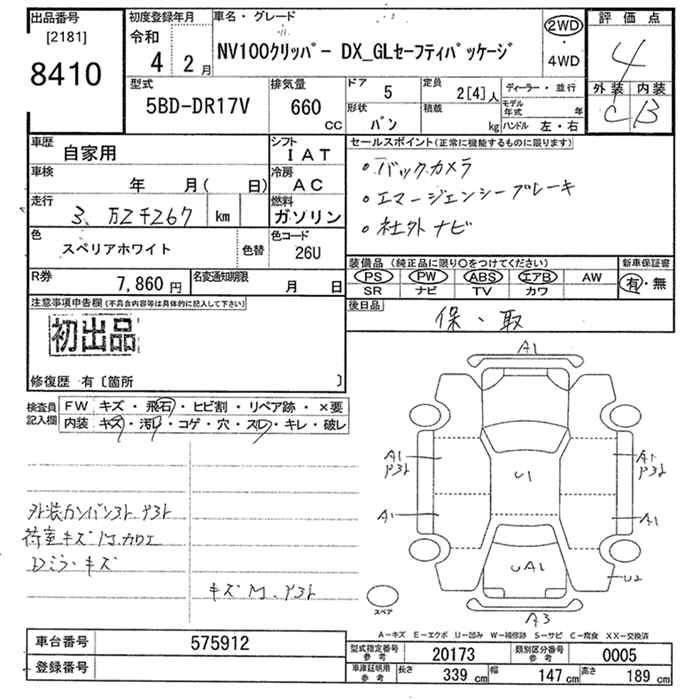 出品番号 初度登録年月 車名・グレード 2WD 評価点
[2181] 令和 4WD 4
8410 4年 2月 NV100クリッパー DX_GLセーフティパッケージ 外装 内装
C B
型式 排気量 ドア 5 定員 2[4]人 ディーラー・並行
5BD-DR17V 660 CC 形状 バン 積載 kg モデル年式 年
ハンドル 左・右
車歴 自家用 シフト IAT セールスポイント(正常に機能するものに限ります)
車検 年 月( 日) 冷房 AC ・バックカメラ
走行 3万2千267 km 燃料 ガソリン ・エマージェンシーブレーキ
色 スペリアホワイト 色替 色コード 26U ・社外ナビ
R券 7,860円 名変通知期限 月 日 装備品(純正品に限り○をつけてください) 新車保証書
PS PW ABS エアB AW 有・無
SR ナビ TV カワ
注意事項申告欄(不具合内容等は具体的に記入して下さい) 後日品
初出品 保・取
修復歴 有〔箇所 〕
検査員記入欄 FW キズ・飛石・ヒビ割・リペア跡・×要
内装 キズ・汚れ・コゲ・穴・スレ・キレ・破レ
A1
A1 ヤ3ト U1 A1 ヤ3ト
A1 A1
外装カンバンヌト ヤ3ト
荷室キズ
Dミラーキズ UA1 U2
スペア A3
A-キズ E-エクボ U-凹み W-補修跡 S-サビ C-腐食 XX-交換済
車台番号 575912 型式指定番号 参考 20173 類別区分番号 参考 0005
登録番号 車庫証明用 参考 長さ 339 cm 幅 147 cm 高さ 189 cm